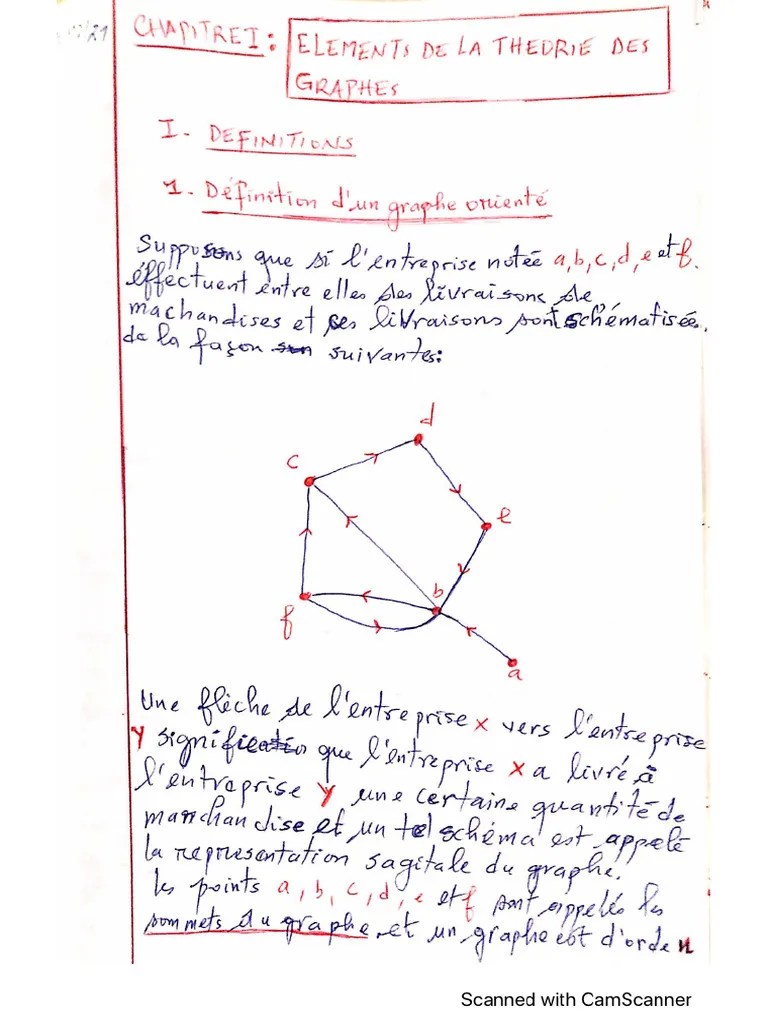 CHAPITRE I : ELEMENTS DE LA THEORIE DES
GRAPHES
I - DEFINITIONS
1. Définition d'un graphe orienté
Supposons que si l'entreprise notée a, b, c, d, e et f.
éffectuent entre elles des livraisons de
machandises et ces livraisons sont schématisée.
de la façon suivantes:
d
c
e
b
f
a
Une flèche de l'entreprise x vers l'entreprise
y signifie que l'entreprise x a livré à
l'entreprise y une certaine quantité de
marchandise et un tel schéma est appelé
la representation sagitale du graphe.
les points a, b, c, d, e et f sont appelés les
sommets du graphe et un graphe est d'orde n
Scanned with CamScanner